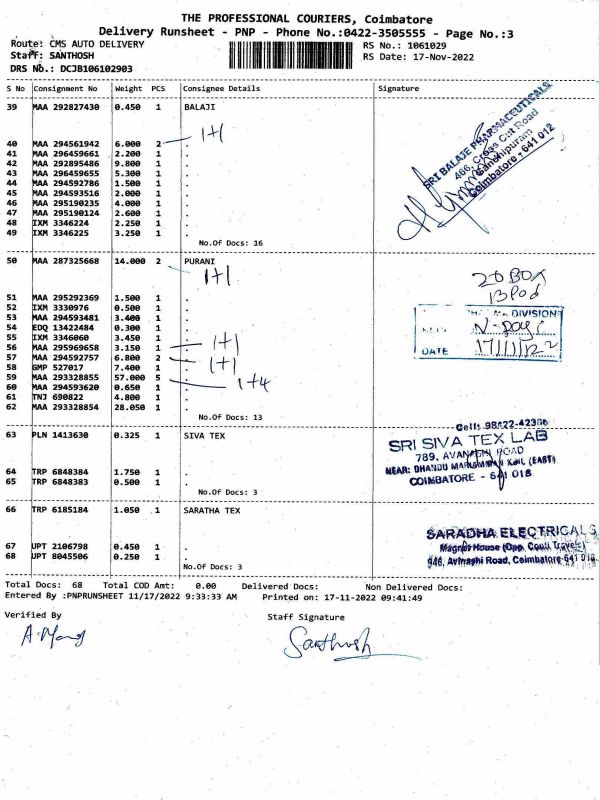 THE PROFESSIONAL COURIERS, Coimbatore
Delivery Runsheet - PNP - Phone No.:0422-3505555 - Page No.:3
Route: CMS AUTO DELIVERY
RS No.: 1061029
Staff: SANTHOSH
RS Date: 17-Nov-2022
DRS No.: DCJB106102903
S No Consignment No Weight PCS Consignee Details Signature
39 MAA 292827430 0.450 1 BALAJI
1+1
40 MAA 294561942 6.000 2 .
41 MAA 296459661 2.200 1 .
42 MAA 292895486 9.800 1 .
43 MAA 296459655 5.300 1 .
44 MAA 294592786 1.500 1 .
45 MAA 294593516 2.000 1 .
46 MAA 295190235 4.000 1 .
47 MAA 295190124 2.600 1 .
48 IXM 3346224 2.250 1 .
49 IXM 3346225 3.250 1 .
No.Of Docs: 16
SRI BALAJE PHARMACEUTICALS
466, Cross Cut Road
Gandhipuram
Coimbatore - 641 012
50 MAA 287325668 14.000 2 PURANI
1+1
51 MAA 295292369 1.500 1 .
52 IXM 3330976 0.500 1 .
53 MAA 294593481 3.400 1 .
54 EDQ 13422484 0.300 1 .
55 IXM 3346060 3.450 1 .
56 MAA 295969658 3.150 1 . 1+1
57 MAA 294592757 6.800 2 . 1+1
58 GMP 527017 7.400 1 .
59 MAA 293328855 57.000 5 . 1+4
60 MAA 294593620 0.650 1 .
61 TNJ 690822 4.800 1 .
62 MAA 293328854 28.050 1 .
No.Of Docs: 13
20 BOX
13 Pod
DIVISION
DATE 17/11/22
63 PLN 1413630 0.325 1 SIVA TEX
64 TRP 6848384 1.750 1 .
65 TRP 6848383 0.500 1 .
No.Of Docs: 3
SRI SIVA TEX LAB
789, AVANASHI ROAD
NEAR: DHANDU MARIAMMAN KOIL (EAST)
COIMBATORE - 641 018
66 TRP 6185184 1.050 1 SARATHA TEX
67 UPT 2106798 0.450 1 .
68 UPT 8045506 0.250 1 .
No.Of Docs: 3
SARADHA ELECTRICALS
Magnet House (Opp. Conti Travels)
946, Avinashi Road, Coimbatore-641 018
Total Docs: 68 Total COD Amt: 0.00 Delivered Docs: Non Delivered Docs:
Entered By :PNPRUNSHEET 11/17/2022 9:33:33 AM Printed on: 17-11-2022 09:41:49
Verified By
Staff Signature
Santhosh